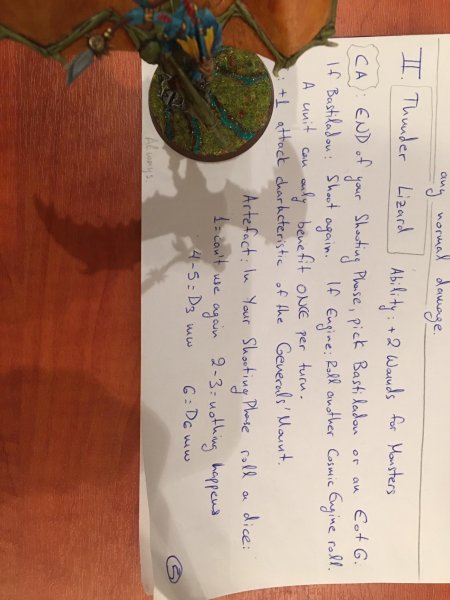 any normal damage.
II. Thunder Lizard Ability: +2 Wounds for Monsters
CA: END of your Shooting Phase, pick Bastiladon or an EotG.
If Bastiladon: Shoot again. If Engine: Roll another Cosmic Engine roll.
A unit can only benefit ONCE per turn.
: +1 attack characteristic of the Generals' Mount.
Artefact: In Your Shooting Phase roll a dice:
1=can't use again 2-3=nothing happens
4-5=D3 mw 6=D6 mw
Always
5